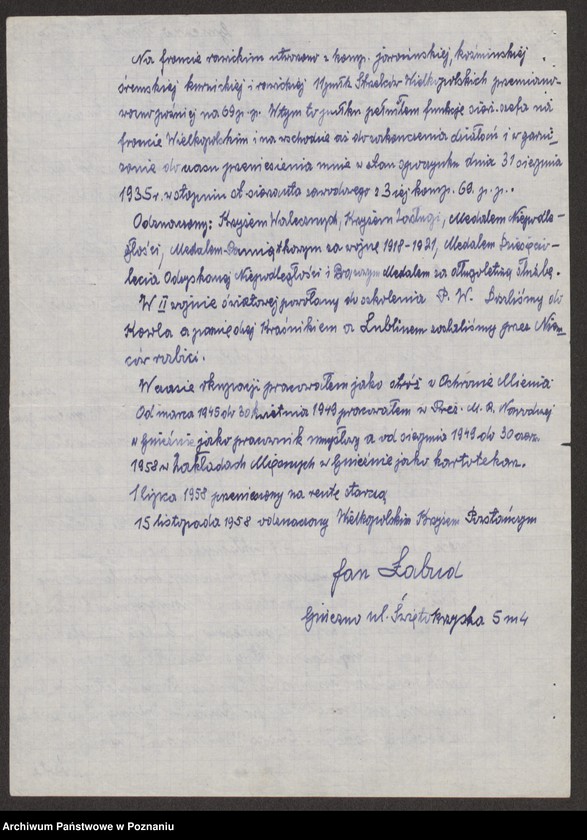 Na froncie rawickim utworzono z komp. jarocińskiej, koźmińskiej
śremskiej kurnickiej i rawickiej 11 pułk Strzelców Wielkopolskich przemiano-
wany później na 69 p.p. W tym to pułku pełniłem funkcję sierż. szefa na
froncie Wielkopolskim i na wschodzie aż do zakończenia działań i w garni-
zonie do czasu przeniesienia mnie w stan spoczynku dnia 31 sierpnia
1935 r. w stopniu st. sierżanta zawodowego z 3-ciej komp. 69. p.p..
Odznaczony: Krzyżem Walecznych, Krzyżem Zasługi, Medalem Niepodle-
głości, Medalem Pamiątkowym za wojnę 1918-1921, Medalem Dziesięcio-
lecia Odzyskanej Niepodległości i Brązowym Medalem za długoletnią służbę.
W II wojnie światowej powołany do szkolenia P. W. Doszliśmy do
Kowla a pomiędzy Kraśnikiem a Lublinem zostaliśmy przez Niem-
ców rozbici.
W czasie okupacji pracowałem jako stróż w Ochronie Mienia
Od marca 1945 do 30 kwietnia 1949 pracowałem w Prez. M. R. Narodowej
w Gnieźnie jako pracownik umysłowy a od sierpnia 1949 do 30 czerw.
1958 w Zakładach Mięsnych w Gnieźnie jako kartotekarz.
1 lipca 1958 przeniesiony na rentę starczą
15 listopada 1958 odznaczony Wielkopolskim Krzyżem Powstańczym
Jan Łabud
Gniezno ul. Świętokrzyska 5 m 4
Archiwum Państwowe w Poznaniu